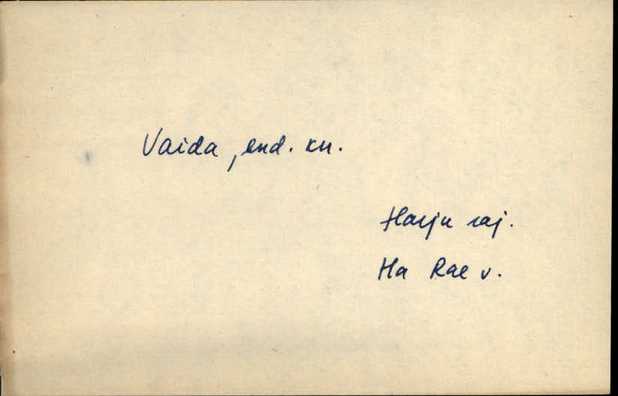 Vaida, end. kn.
Harju raj.
Ha Rae v.